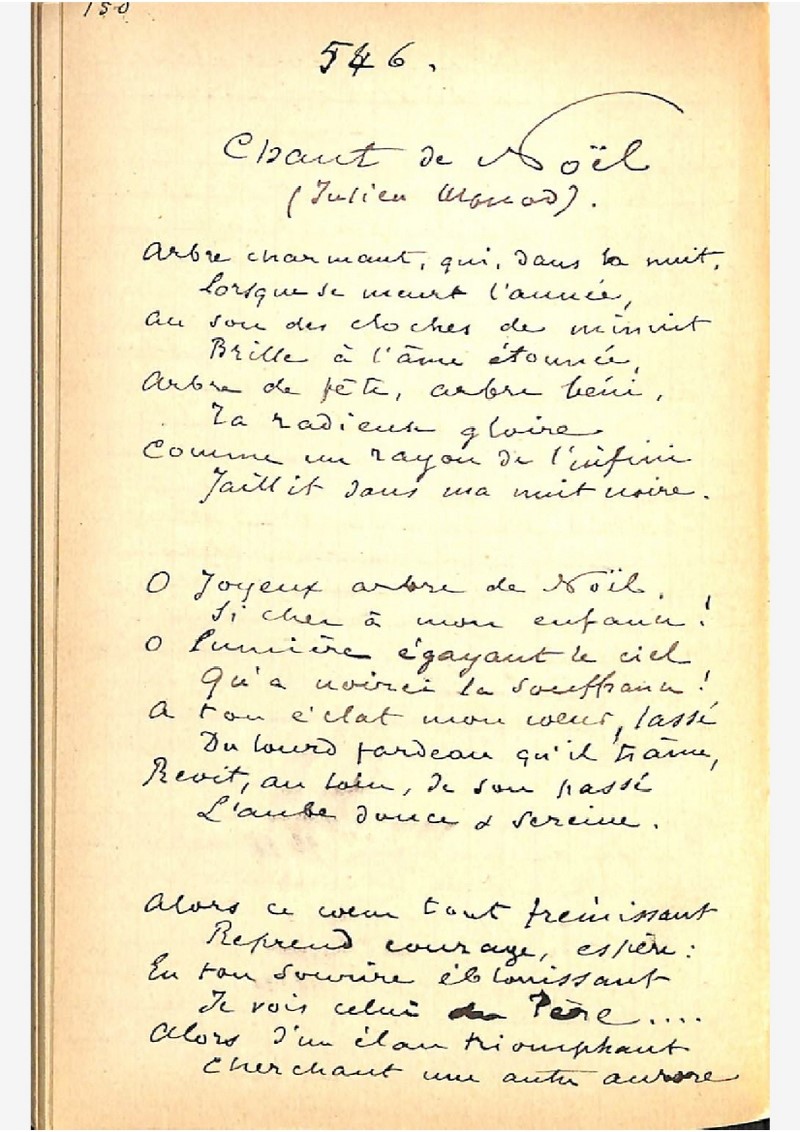 150
546.
Chant de Noël
(Julien Monod).
Arbre charmant, qui, dans la nuit,
Lorsque se meurt l'année,
Au son des cloches de minuit
Brille à l'âme étonnée,
Arbre de fête, arbre béni,
Ta radieuse gloire
Comme un rayon de l'infini
Jaillit dans ma nuit noire.
O Joyeux arbre de Noël,
Si cher à mon enfance!
O Lumière égayant le ciel
Qu'a noirci la souffrance!
A ton éclat mon coeur, lassé
Du lourd fardeau qu'il traîne,
Revoit, au loin, de son passé
L'aube douce & sereine.
Alors ce coeur tout frémissant
Reprend courage, espère:
En ton sourire éblouissant
Je vois celui du Père....
Alors d'un élan triomphant
Cherchant une autre aurore